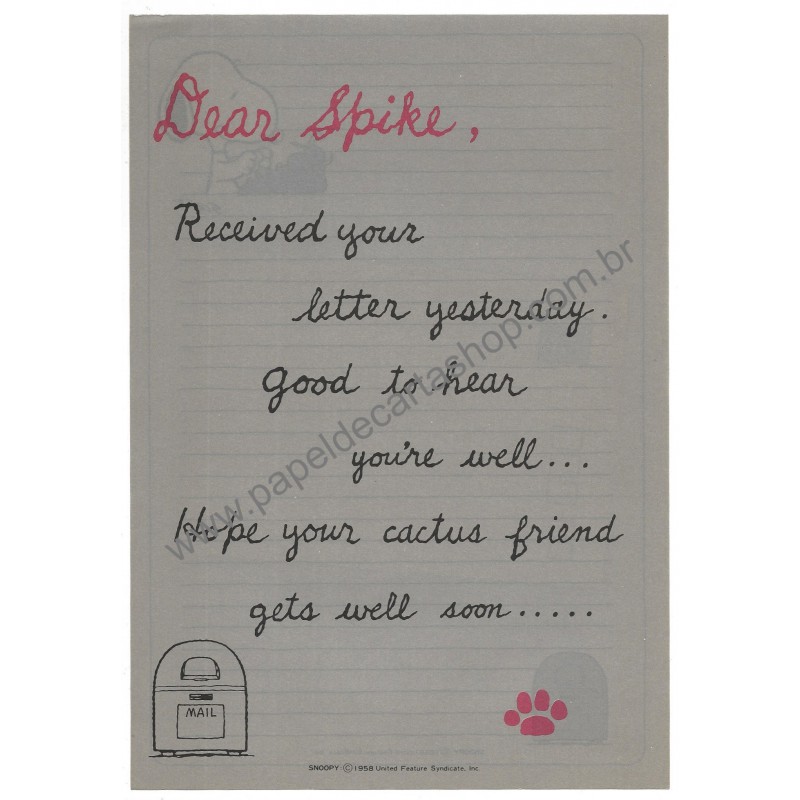 Dear Spike,
Received your
letter yesterday.
Good to hear
you're well...
Hope your cactus friend
gets well soon.....
MAIL
SNOOPY: © 1958 United Feature Syndicate, Inc.
www.papeldecartashop.com.br